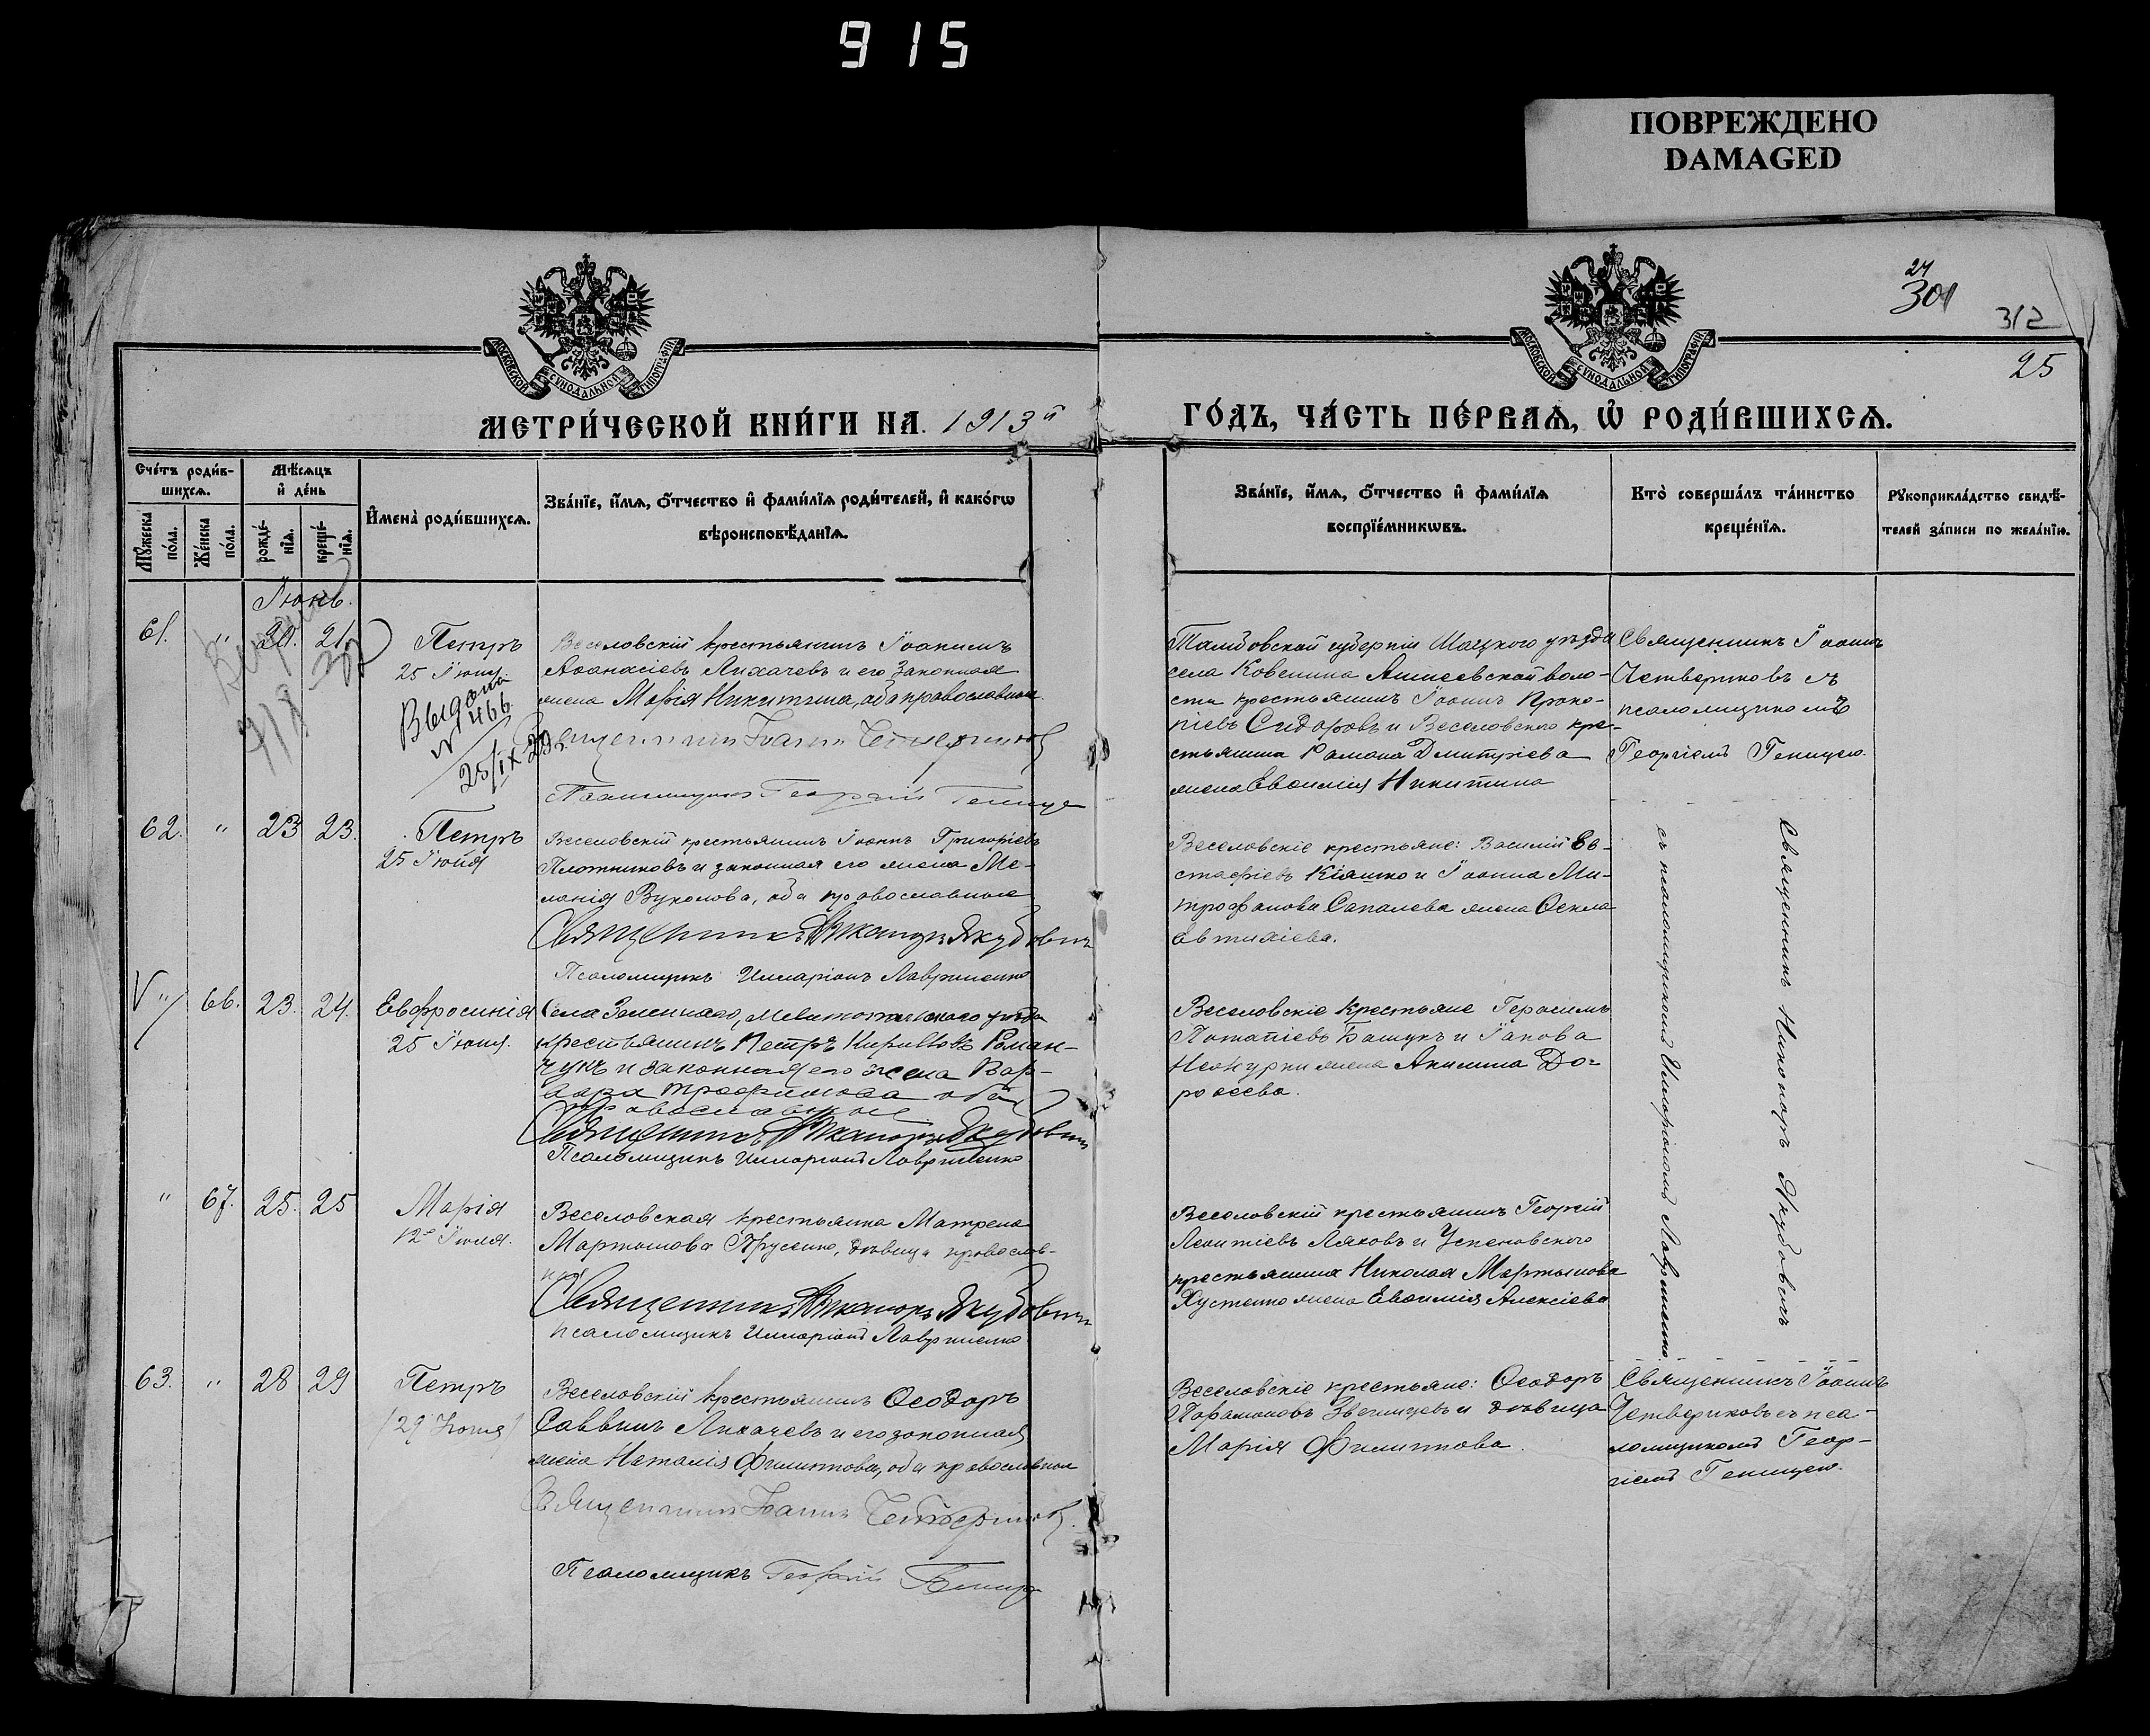 915
ПОВРЕЖДЕНО
DAMAGED
24
301
312
25
МОСКОВСКОЙ СУНОДАЛЬНОЙ ТИПОГРАФІИ
МОСКОВСКОЙ СУНОДАЛЬНОЙ ТИПОГРАФІИ
МЕТРИ́ЧЕСКОЙ КНИ́ГИ НА 1913й
ГО́ДЪ, ЧА́СТЬ ПЕ́РВАѦ, Ѡ҆ РОДИ́ВШИХСѦ.
Сче́тъ роди́в-
шихсѧ.
Мꙋ́жеска по́ла.
Же́нска по́ла.
Мѣ́сѧцъ
и҆ де́нь
рожде́-
нїѧ.
креще́-
нїѧ.
И҆мена̀ роди́вшихсѧ.
Зва́нїе, и҆́мѧ, ѻ҆́тчество и҆ фами́лїѧ роди́телей, и҆ како́гѡ
вѣроисповѣ́данїѧ.
Зва́нїе, и҆́мѧ, ѻ҆́тчество и҆ фами́лїѧ
воспрїе́мникѡвъ.
Кто̀ соверша́лъ та́инство
креще́нїѧ.
Рꙋкоприкла́дство свидѣ́-
телей за́писи по жела́нїю.
Іюнь.
61. " 20. 21. Петръ
25 Іюня.
Выдана
№ 466
25/IX 29 г.
918
Веселовскій крестьянинъ Іоаннъ
Аѳанасіевъ Лихачевъ и его законная
жена Марія Никитина, оба православные.
Священникъ Іоаннъ Четвериковъ
Псаломщикъ Георгій Геницея
Тамбовской губерніи Шацкого уѣзда
села Ковенина волости
крестьянинъ Іоаннъ Проко-
піевъ Сидоровъ и Веселовского кре-
стьянина Романа Дмитріева
жена Евѳимія Никитина
Священникъ Іоаннъ
Четвериковъ съ
псаломщикомъ
Георгіемъ Геницею.
62. " 23 23. Петръ
25 Іюня
Веселовскій крестьянинъ Іоаннъ Григоріевъ
Плотниковъ и законная его жена Ме-
ланія Вуколова, оба православные
Священникъ Никаноръ Якубовичъ
Псаломщикъ Илларіонъ Лавриненко
Веселовскіе крестьяне: Василій Ев-
стафіевъ Кіяшко и Іоанна Ми-
трофанова Сапалева жена Ѳекла
Евтихіева.
Священникъ Никаноръ Якубовичъ
съ псаломщикомъ Илларіономъ Лавриненко
V " 66. 23. 24. Евфросинія
25 Іюня.
Села Зеленнаго, Мелитопольского уѣзда
крестьянинъ Петръ Кирилловъ Роман-
чукъ и законная его жена Вар-
вара Трофимова оба
православные.
Священникъ Никаноръ Якубовичъ
Псаломщикъ Илларіонъ Лавриненко
Веселовскіе крестьяне Герасимъ
Потапіевъ Башукъ и Іакова
жена Акилина До-
роѳеева.
" 67. 25. 25 Марія
12 Іюля.
Веселовская крестьянка Матрена
Мартинова Прусенко, дѣвица православ-
ная
Священникъ Никаноръ Якубовичъ
псаломщикъ Илларіонъ Лавриненко
Веселовскій крестьянинъ Георгій
Леонтіевъ Ляховъ и Успеновского
крестьянина Николая Мартынова
Хустенко жена Евѳимія Алексіева
63. " 28 29 Петръ
(29 Іюня)
Веселовскій крестьянинъ Ѳеодоръ
Саввинъ Лихачевъ и его законная
жена Наталія Филиппова, оба православные
Священникъ Іоаннъ Четвериковъ.
Псаломщикъ Георгій Геница
Веселовскіе крестьяне: Ѳеодоръ
Парамоновъ Звегинцевъ и дѣвица
Марія Филиппова.
Священникъ Іоаннъ
Четвериковъ съ пса-
ломщикомъ Геор-
гіемъ Геницею.